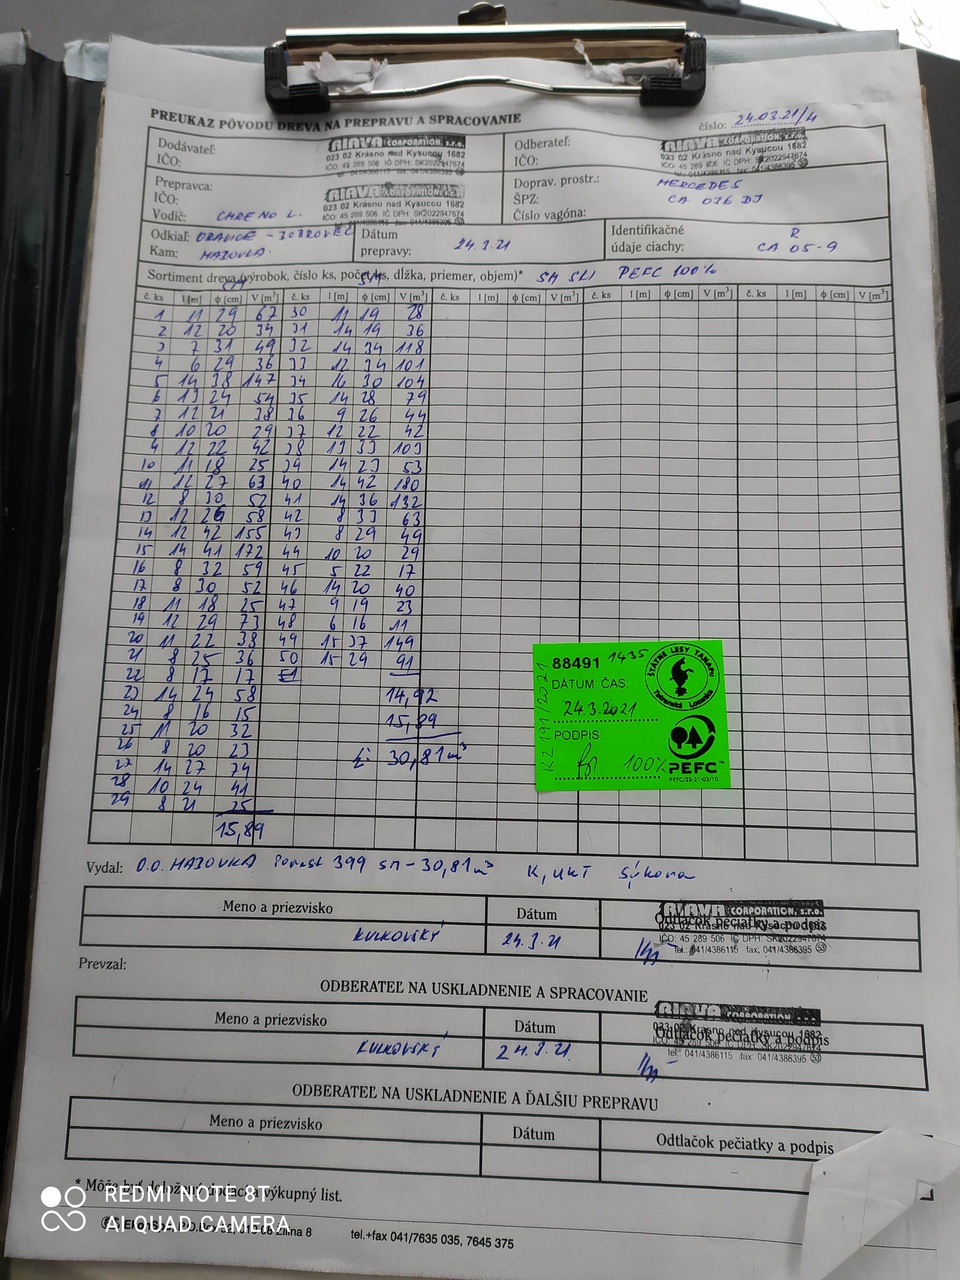 PREUKAZ PÔVODU DREVA NA PREPRAVU A SPRACOVANIE
číslo: 24.03.21/4
Dodávateľ:
IČO:
RIAVA CORPORATION, s.r.o.
023 02 Krásno nad Kysucou 1682
IČO: 45 289 506 IČ DPH: SK2022947674
Odberateľ:
IČO:
RIAVA CORPORATION, s.r.o.
023 02 Krásno nad Kysucou 1682
IČO: 45 289 506 IČ DPH: SK2022947674
tel.: 041/4386115 fax: 041/4386395
Prepravca:
IČO:
Vodič:
RIAVA CORPORATION, s.r.o.
023 02 Krásno nad Kysucou 1682
IČO: 45 289 506 IČ DPH: SK2022947674
Doprav. prostr.: MERCEDES
ŠPZ: CA 076 DJ
Číslo vagóna:
Odkiaľ:
Kam:
Dátum
prepravy: 24.3.21
Identifikačné R
údaje ciachy: CA 05-9
Sortiment dreva (výrobok, číslo ks, počet ks, dĺžka, priemer, objem)* SM PEFC 100%
č. ks l [m] ϕ [cm] V [m³] č. ks l [m] ϕ [cm] V [m³] č. ks l [m] ϕ [cm] V [m³] č. ks l [m] ϕ [cm] V [m³] č. ks l [m] ϕ [cm] V [m³]
1 11 29 67 30 11 19 28
2 12 20 34 31 14 19 36
3 7 31 49 32 14 34 118
4 6 29 36 33 12 34 101
5 14 38 147 34 16 30 104
6 13 24 54 35 14 28 79
7 12 21 38 36 9 26 44
8 10 20 29 37 12 22 42
9 12 22 42 38 13 33 103
10 11 18 25 39 14 23 53
11 12 27 63 40 14 42 180
12 8 30 52 41 14 36 132
13 12 26 58 42 8 33 63
14 12 42 155 43 8 29 49
15 14 41 172 44 10 20 29
16 8 32 59 45 5 22 17
17 8 30 52 46 14 20 40
18 11 18 25 47 9 19 23
19 12 29 73 48 6 16 11
20 11 22 38 49 15 37 149
21 8 25 36 50 15 29 91
22 8 17 17 51
23 14 24 58 14,92
24 8 16 15 15,89
25 11 20 32
26 8 20 23 30,81 m³
27 14 27 74
28 10 24 41
29 8 21 25
15,89
88491 1435
DÁTUM, ČAS
24.3.2021
PODPIS
100%
KZ 191/2021
ŠTÁTNE LESY TANAPU
Tatranská Lomnica
PEFC™
PEFC/23-21-03/10
Vydal: O.O. HAJOVKA Porast 399 SM - 30,81 m³
Meno a priezvisko Dátum Odtlačok pečiatky a podpis
24.3.21
RIAVA CORPORATION, s.r.o.
023 02 Krásno nad Kysucou 1682
IČO: 45 289 506 IČ DPH: SK2022947674
Tel.: 041/4386115 fax: 041/4386395
Prevzal:
ODBERATEĽ NA USKLADNENIE A SPRACOVANIE
Meno a priezvisko Dátum Odtlačok pečiatky a podpis
24.3.21
RIAVA CORPORATION, s.r.o.
023 02 Krásno nad Kysucou 1682
IČO: 45 289 506 IČ DPH: SK2022947674
tel.: 041/4386115 fax: 041/4386395
ODBERATEĽ NA USKLADNENIE A ĎALŠIU PREPRAVU
Meno a priezvisko Dátum Odtlačok pečiatky a podpis
* Môže byť doložený dodací a výkupný list.
REDMI NOTE 8T
AI QUAD CAMERA
Žilina 8 tel.+fax 041/7635 035, 7645 375